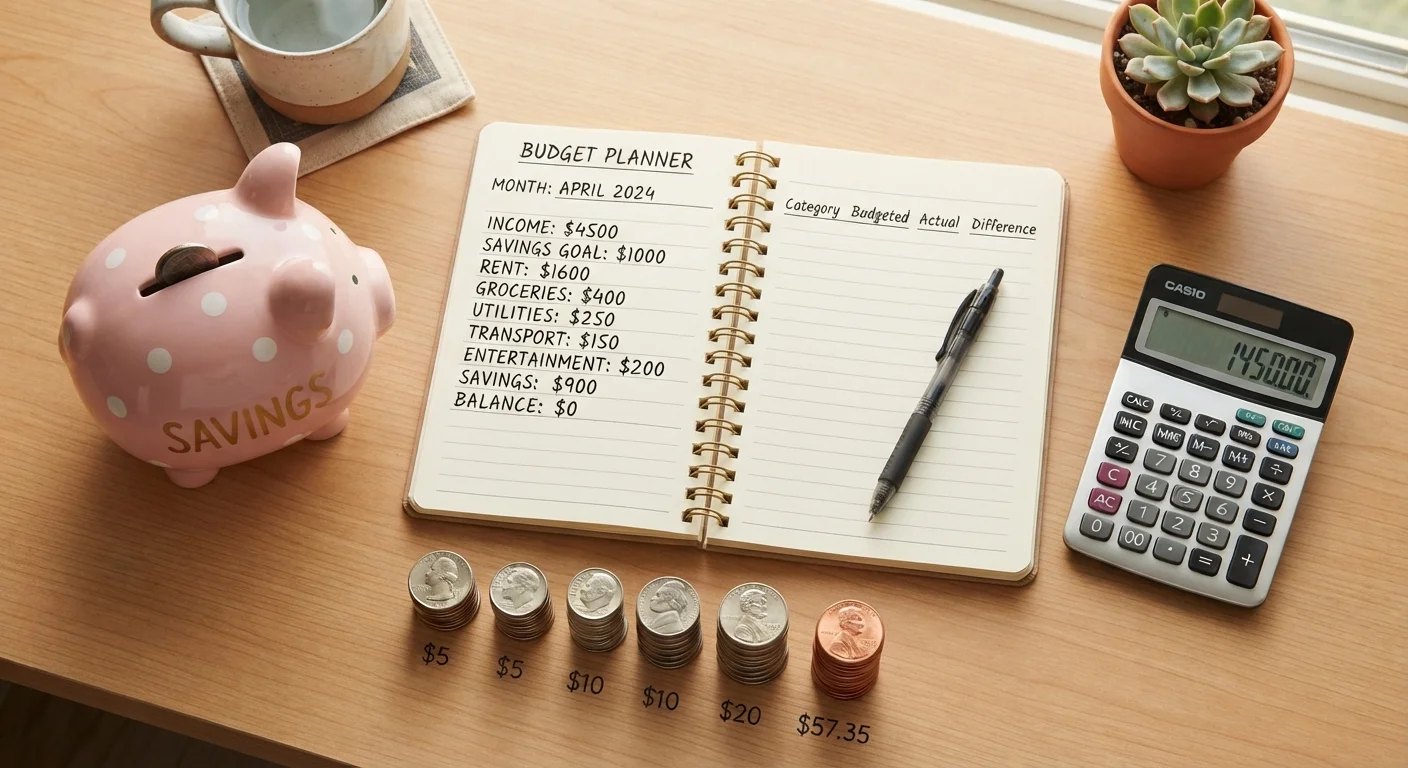 BUDGET PLANNER
MONTH: APRIL 2024
INCOME: $4500
SAVINGS GOAL: $1000
RENT: $1600
GROCERIES: $400
UTILITIES: $250
TRANSPORT: $150
ENTERTAINMENT: $200
SAVINGS: $900
BALANCE: $0
Category Budgeted Actual Difference
SAVINGS
CASIO
1450.00
CALC
M-
7 8 9 ÷
C 4 5 6 ×
AC 1 2 3 −
0 00 . = +
$5 $5 $10 $10 $20 $57.35